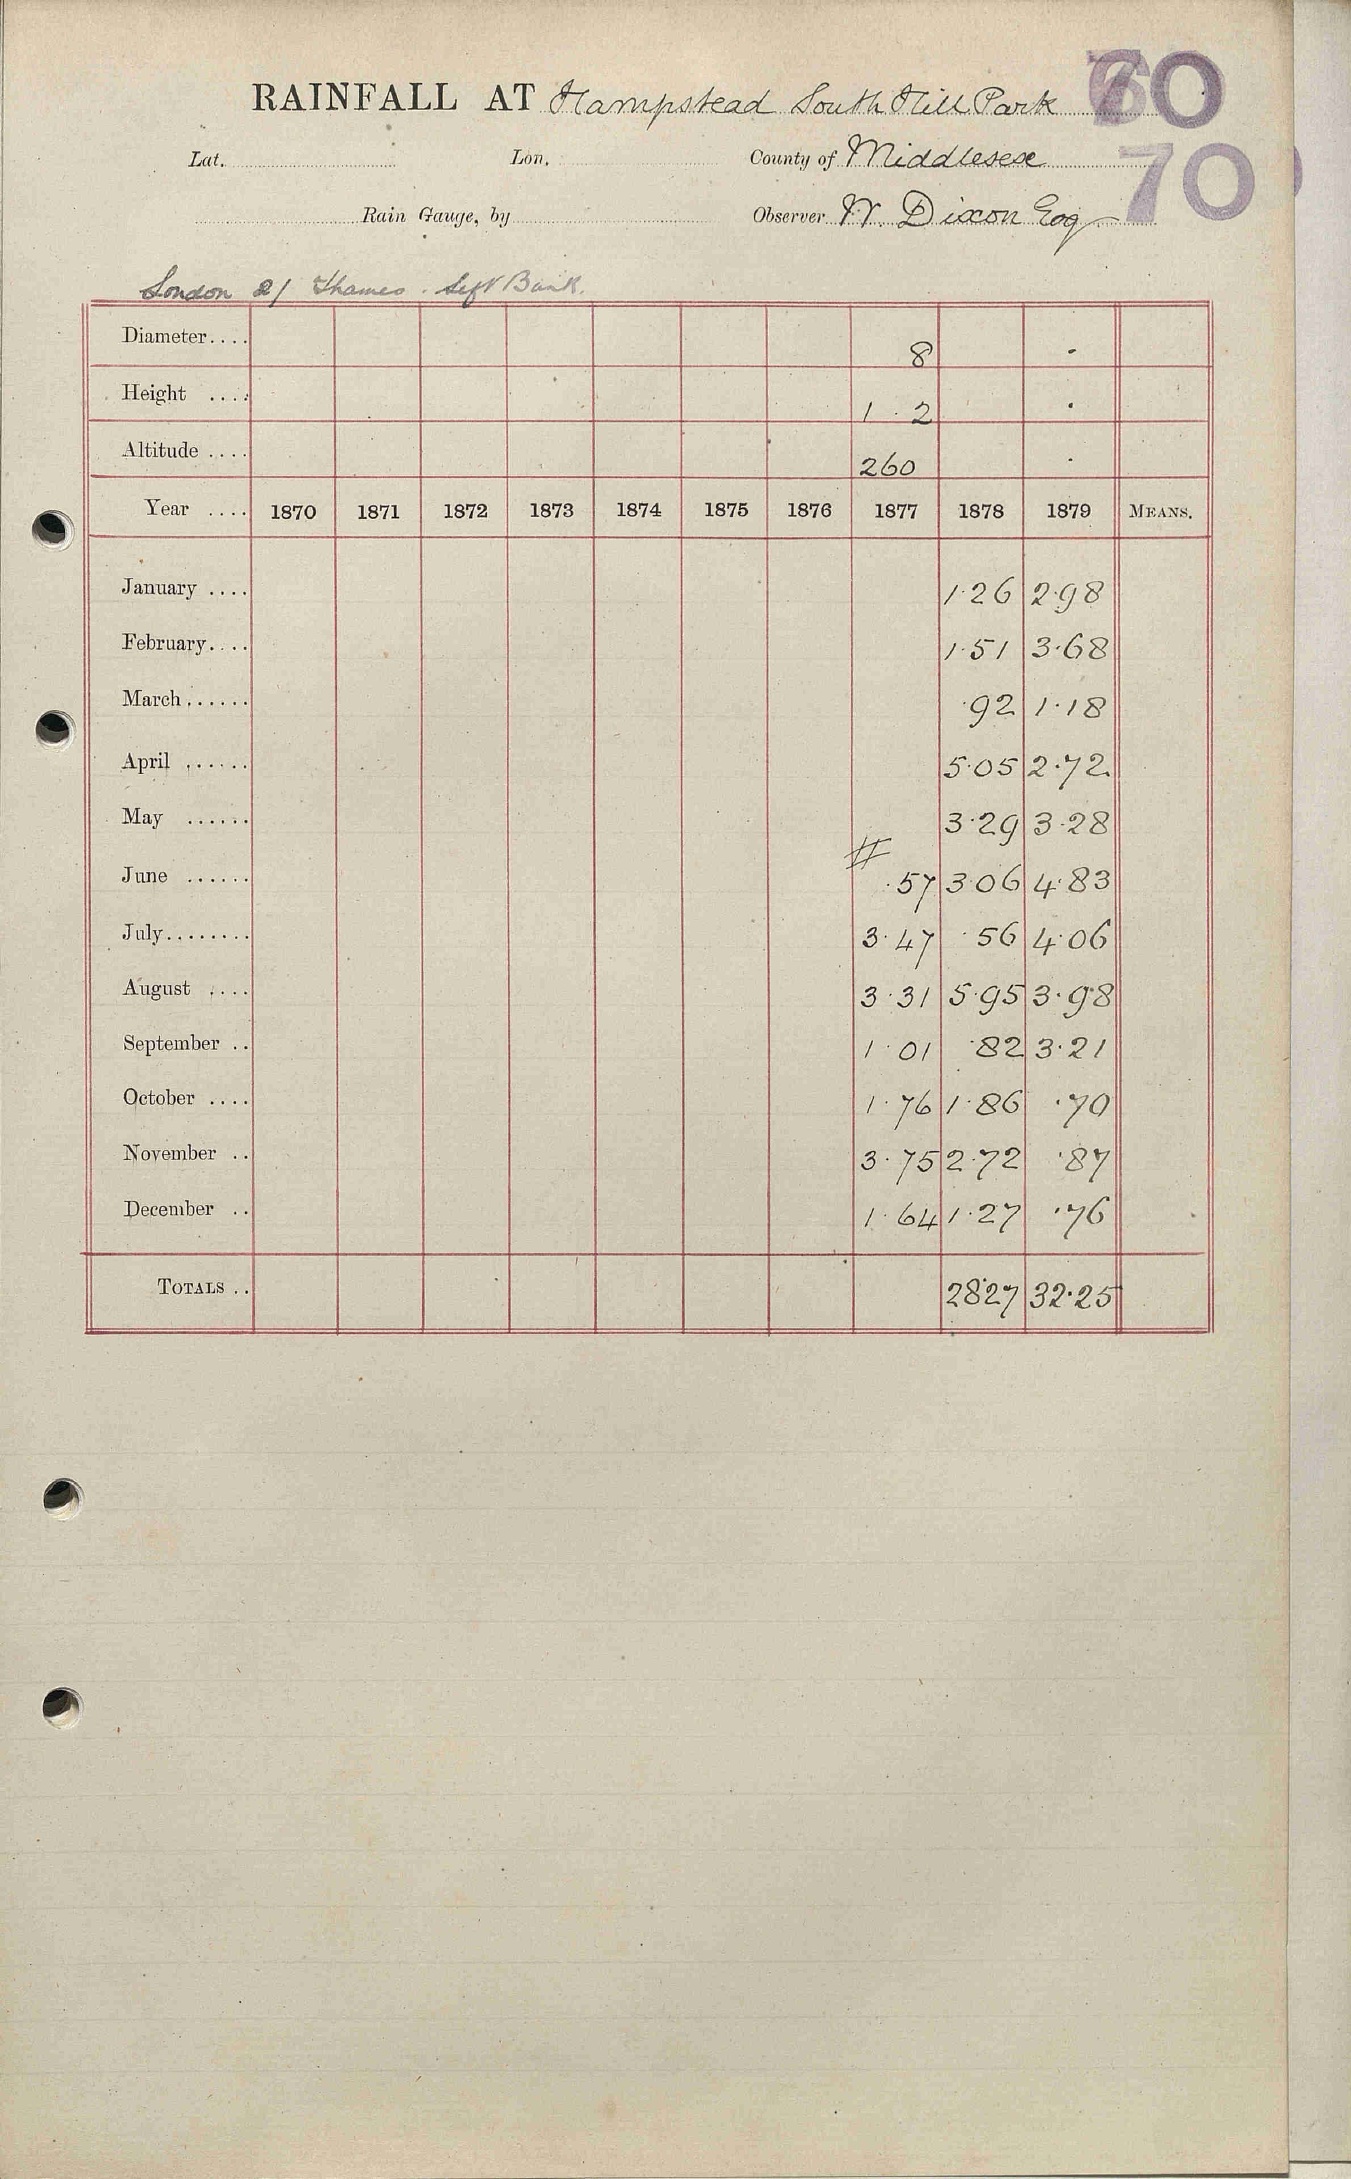 RAINFALL AT Hampstead South Hill Park 70
Lat. Lon. County of Middlesex 70
Rain Gauge, by Observer W. Dixon Esq
London 2/ Thames. Left Bank.
Diameter.... 8 .
Height .... 1 . 2 .
Altitude .... 260 .
Year .... 1870 1871 1872 1873 1874 1875 1876 1877 1878 1879 MEANS.
January .... 1.26 2.98
February.... 1.51 3.68
March...... .92 1.18
April ...... 5.05 2.72
May ...... 3.29 3.28
June ...... # .57 3.06 4.83
July........ 3.47 .56 4.06
August .... 3.31 5.95 3.98
September .. 1.01 .82 3.21
October .... 1.76 1.86 .70
November .. 3.75 2.72 .87
December .. 1.64 1.27 .76
TOTALS .. 28.27 32.25